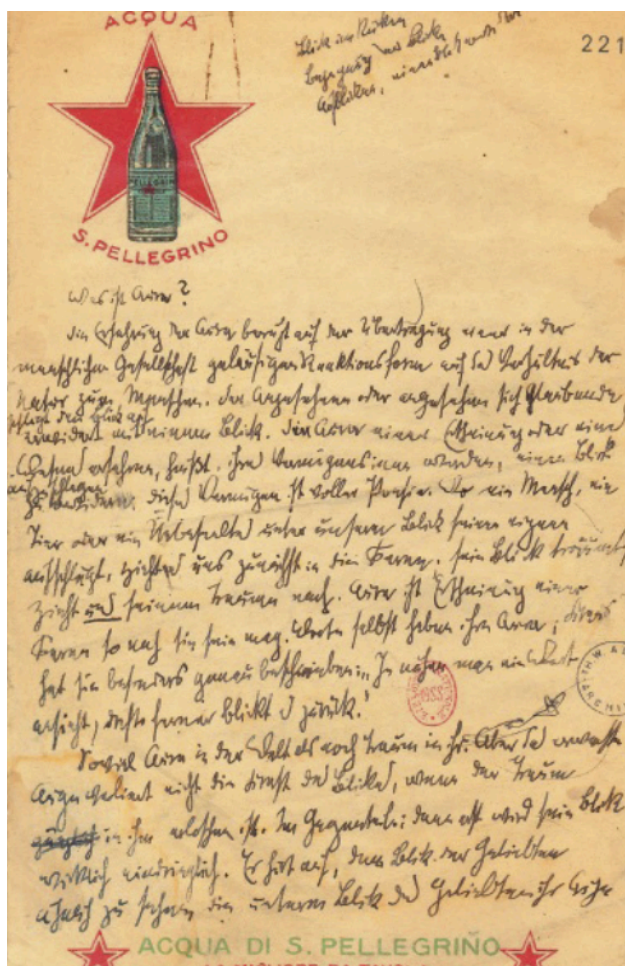 ACQUA
S. PELLEGRINO
PELLEGRINO
221
Blick im Rücken
Begegnung der Blicke
Aufblicken,
Was ist Aura?
Die Erfahrung der Aura beruht auf der Übertragung einer in der
menschlichen Gesellschaft geläufigen Reaktionsform auf das Verhältnis der
Natur zum Menschen. Der Angesehene oder angesehen sich Glaubende
schlägt den Blick auf
erwidert mit einem Blick. Die Aura einer Erscheinung oder eines
Wesens erfahren, heißt, ihres Vermögens inne werden, einen Blick
aufzuschlagen
zu erwidern. Dieses Vermögen ist voller Poesie. Wo ein Mensch, ein
Tier oder ein Unbeseeltes unter unserm Blick seinen eignen
aufschlägt, zieht es uns zunächst in die Ferne; sein Blick träumt,
zieht uns seinem Traume nach. Aura ist Erscheinung einer
Ferne so nah sie sein mag. Worte selbst haben ihre Aura; Kraus
hat sie besonders genau beschrieben: "Je näher man ein Wort
ansieht, desto ferner blickt es zurück."
1983
Soviel Aura in der Welt als noch Traum in ihr. Aber das erwachte
Auge verliert nicht die Kraft des Blicks, wenn der Traum
in ihm erloschen ist. Im Gegenteil: dann erst wird sein Blick
wirklich eindringlich. Er hört auf, dem Blick der Geliebten
ähnlich zu sehen, die unterm Blick des Geliebten ihr Auge
ACQUA DI S. PELLEGRINO